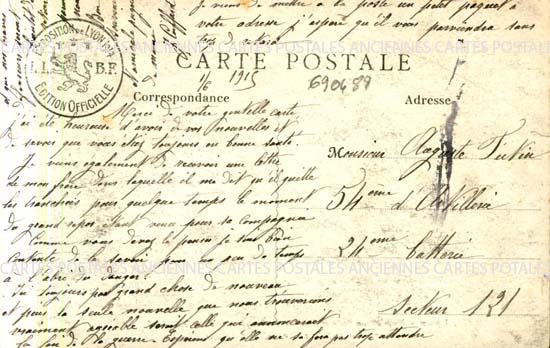 Je viens de mettre à la poste un petit paquet à
votre adresse j'espère qu'il vous parviendra sans
trop de retard
EXPOSITION DE LYON 1914
B.F.
ÉDITION OFFICIELLE
CARTE POSTALE
1/6 1915
690487
Correspondance
Adresse
Merci de votre gentille carte
j'ai été heureuse d'avoir de vos nouvelles et
de savoir que vous étiez toujours en bonne santé.
Je viens également de recevoir une lettre
de mon frère dans laquelle il me dit qu'il quitte
les tranchées pour quelque temps le moment
du grand repos étant venu pour sa compagnie
Comme vous devez le penser je suis bien
contente de le savoir pour un peu de temps
à l'abri du danger
J'ai toujours pas grand chose de nouveau
et puis la seule nouvelle que nous trouverions
vraiment agréable serait celle qui annoncerait
la fin de la guerre Espérons qu'elle ne se fera pas trop attendre
Monsieur Auguste
54eme d'Artillerie
24eme Batterie
Secteur 121
CARTES POSTALES ANCIENNES CARTES POSTALES ANCIENNES CARTES POSTALES